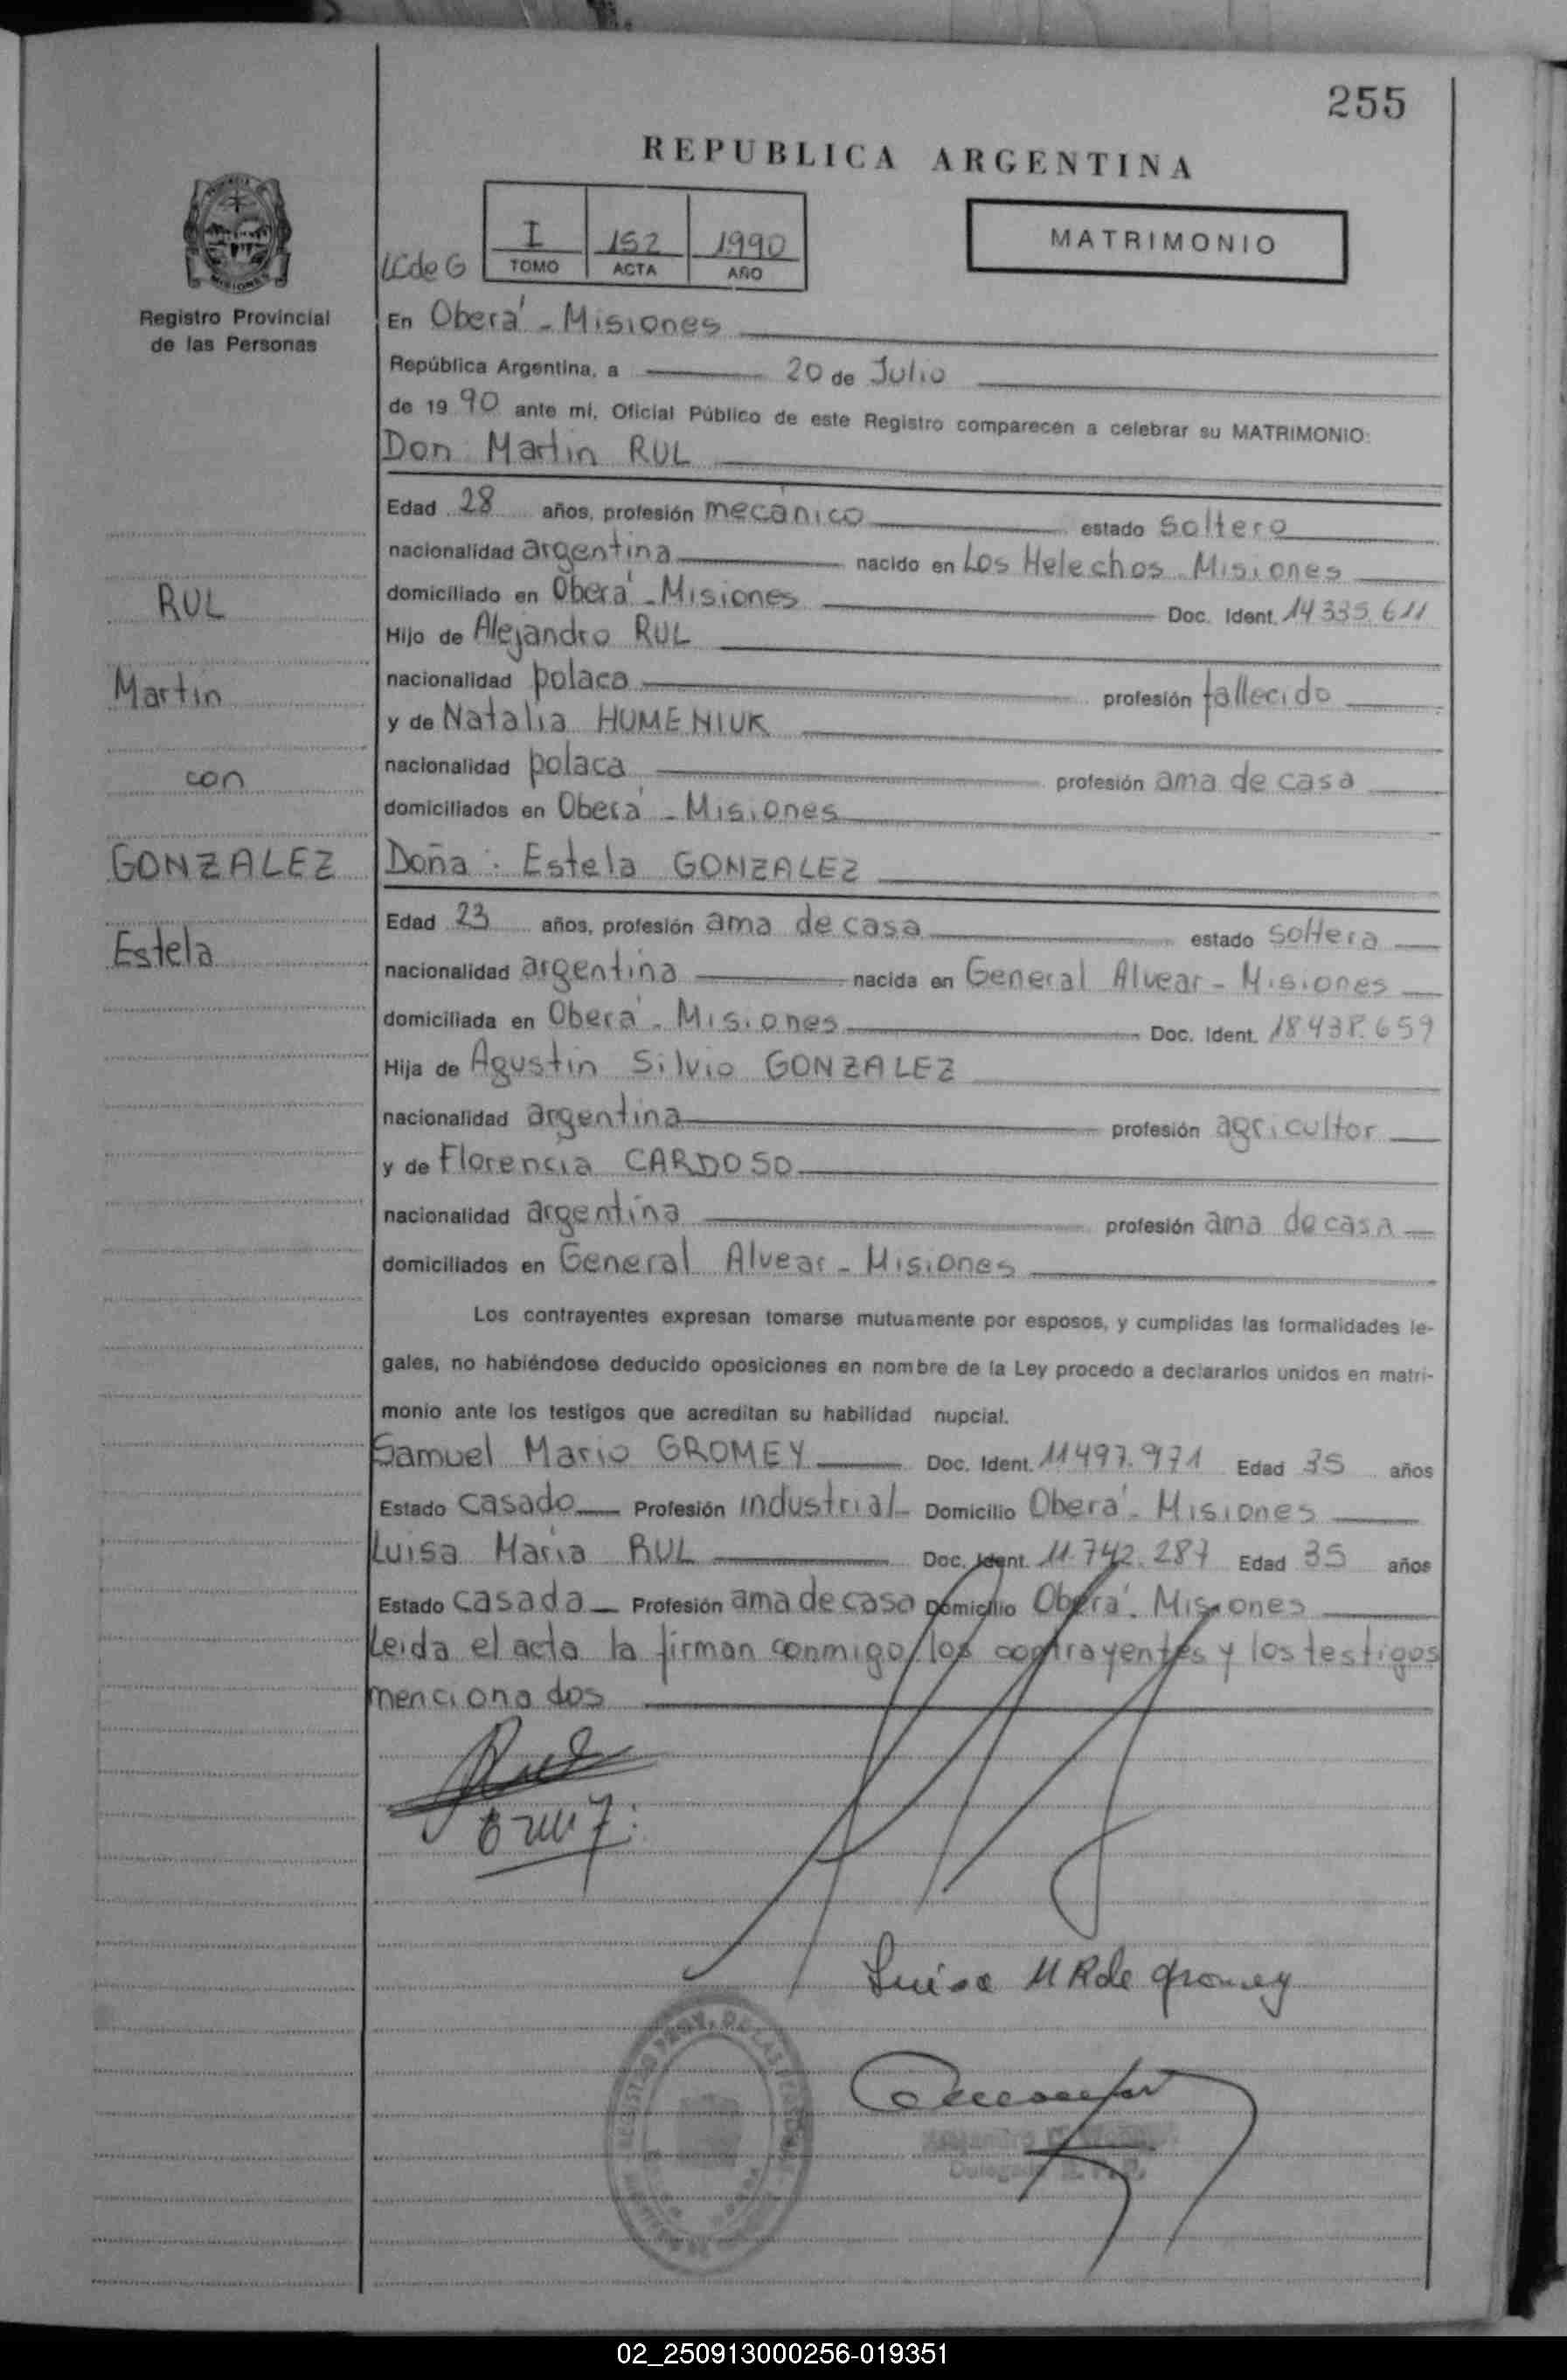 255
REPUBLICA ARGENTINA
I 152 1990
TOMO ACTA AÑO
MATRIMONIO
LC de G
Registro Provincial
de las Personas
En Oberá - Misiones
República Argentina, a 20 de Julio
de 1990 ante mi, Oficial Público de este Registro comparecen a celebrar su MATRIMONIO:
Don Martin RUL
Edad 28 años, profesión mecánico estado soltero
nacionalidad argentina nacido en Los Helechos Misiones
domiciliado en Oberá - Misiones Doc. Ident. 14 335.611
Hijo de Alejandro RUL
nacionalidad polaca profesión fallecido
y de Natalia HUMENIUK
nacionalidad polaca profesión ama de casa
domiciliados en Oberá - Misiones
RUL
Martin
con
GONZALEZ
Estela
Doña : Estela GONZALEZ
Edad 23 años, profesión ama de casa estado soltera
nacionalidad argentina nacida en General Alvear - Misiones
domiciliada en Oberá - Misiones Doc. Ident. 18.438.659
Hija de Agustin Silvio GONZALEZ
nacionalidad argentina profesión agricultor
y de Florencia CARDOSO
nacionalidad argentina profesión ama de casa
domiciliados en General Alvear - Misiones
Los contrayentes expresan tomarse mutuamente por esposos, y cumplidas las formalidades le-
gales, no habiéndose deducido oposiciones en nombre de la Ley procedo a declararlos unidos en matri-
monio ante los testigos que acreditan su habilidad nupcial.
Samuel Mario GROMEY Doc. Ident. 11497.971 Edad 35 años
Estado casado Profesión industrial Domicilio Oberá - Misiones
Luisa Maria RUL Doc. Ident. 11.742.287 Edad 35 años
Estado casada Profesión ama de casa Domicilio Oberá - Misiones
Leida el acta la firman conmigo los contrayentes y los testigos
mencionados
Luisa M R de Gromey
02_250913000256-019351